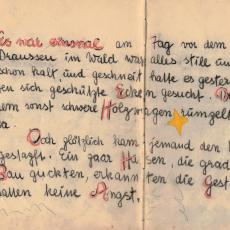 Es war einmal am Tag vor dem
Draussen im Wald war alles still au
schon kalt, und geschneit hatte es gester
en sich geschützte Ecken gesucht. D
em sonst schwere Holzwagen rumpel
a.
Doch plötzlich kam jemand den
gestapft. Ein paar Hasen, die grad
Bau guckten, erkannten die Gest
hatten keine Angst.